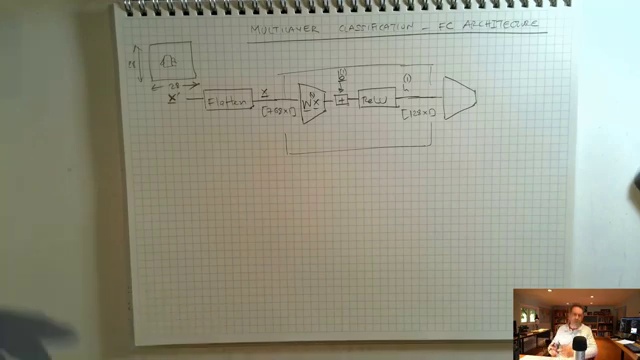 MULTILAYER CLASSIFICATION - FC ARCHITECTURE
28
28
x'
Flatten
x
[768x1]
W x
+
ReLU
(1)
h
[128x1]